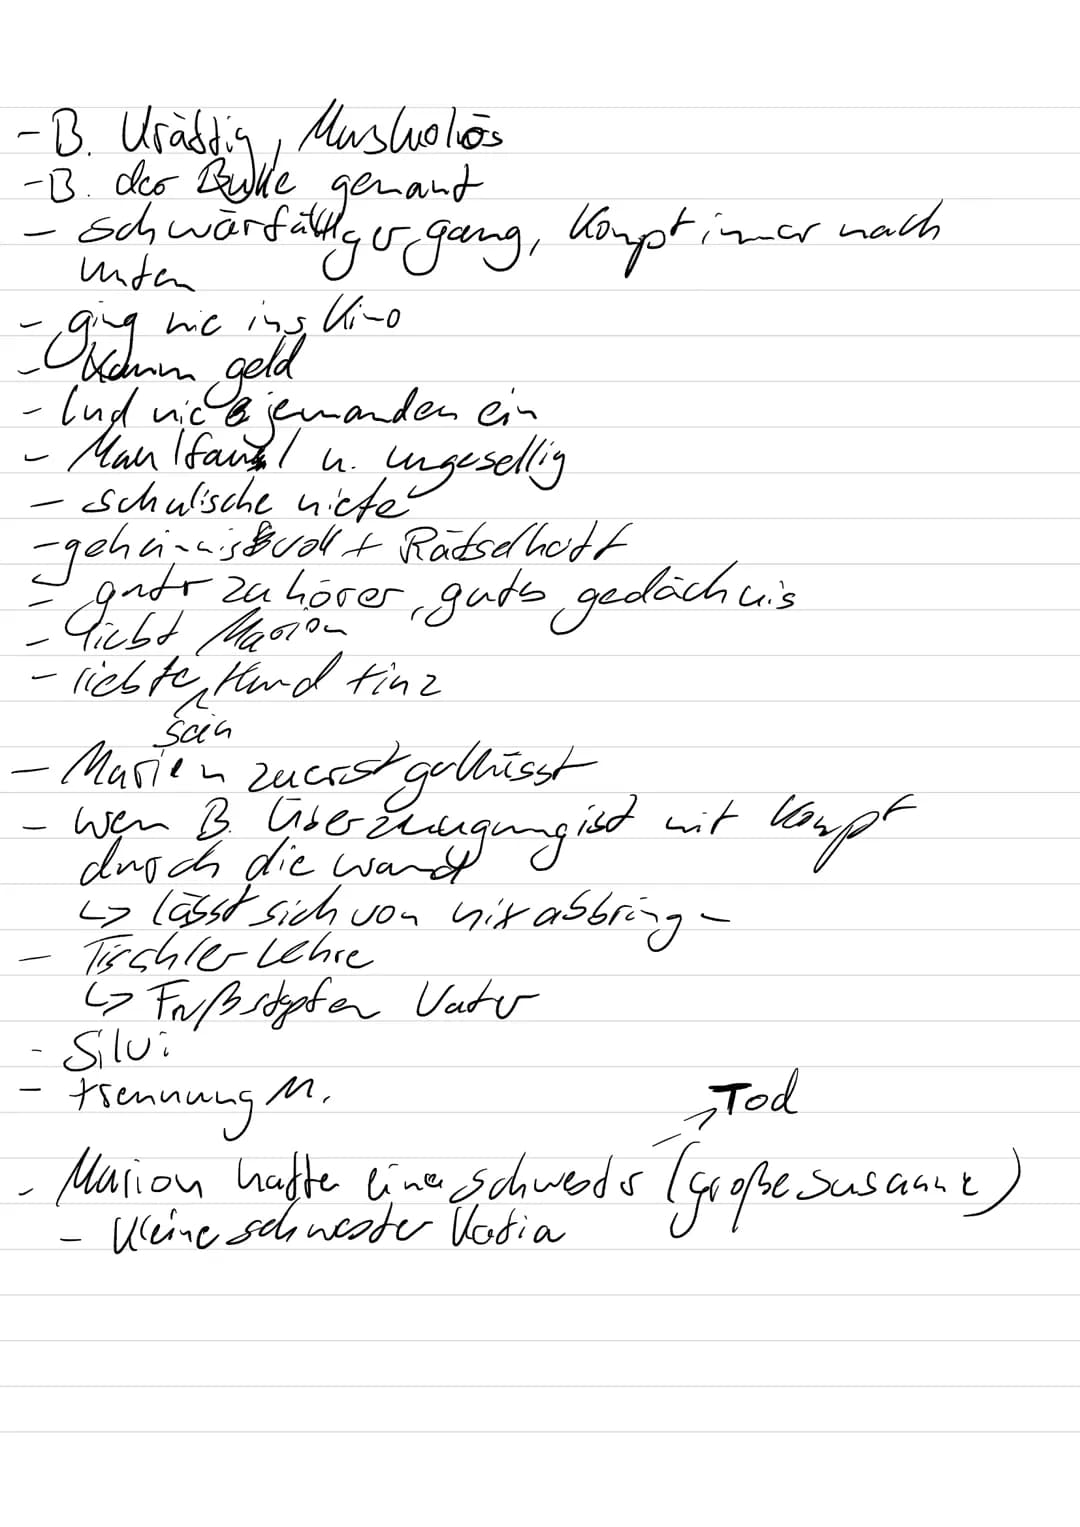 - B. Kräftig, Muskulös
- B. der Bulle genant
- schwärfälliger gang, Kompt immer nach
unten
- ging nie ins Kino
- kaum geld
- lud nie jemanden ein
- Maulfaul u. ungesellig
- schulische niete
- geheimnisvoll + Rätselhaft
- guter zuhörer, gutes gedächnis
- liebt Marion
- liebte Hund tinz
sein
- Marion zuerst geküsst
- wen B. Überzeugung ist mit Kompf
durch die wand
↳ lässt sich von nix abbringen
- Tischler Lehre
↳ Fußstapfen Vater
- Silvi
- trennung M.
→ Tod
- Marion hatte eine schwester (große Susanne)
- kleine schwester Katia